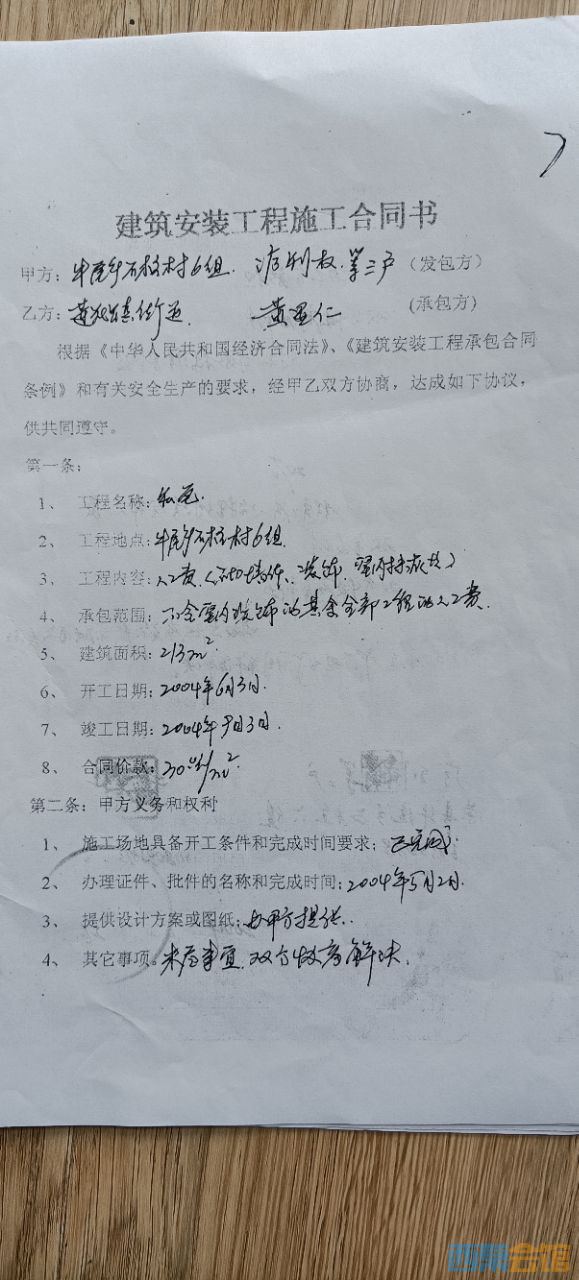 建筑安装工程施工合同书
甲方：石板村6组 第三户（发包方）
乙方：街道 黄 仁（承包方）
根据《中华人民共和国经济合同法》、《建筑安装工程承包合同
条例》和有关安全生产的要求，经甲乙双方协商，达成如下协议，
供共同遵守。
第一条：
1、 工程名称：
2、 工程地点：石板村6组
3、 工程内容：人工费
4、 承包范围：不含室内装饰的其余全部工程的人工费.
5、 建筑面积：213m²
6、 开工日期：2004年6月3日.
7、 竣工日期：2004年9月3日.
8、 合同价款：/m²
第二条：甲方义务和权利
1、 施工场地具备开工条件和完成时间要求：已完成
2、 办理证件、批件的名称和完成时间：2004年5月2日.
3、 提供设计方案或图纸：由甲方提供.
4、 其它事项。未尽事宜.双方协商解决.
西祠会馆